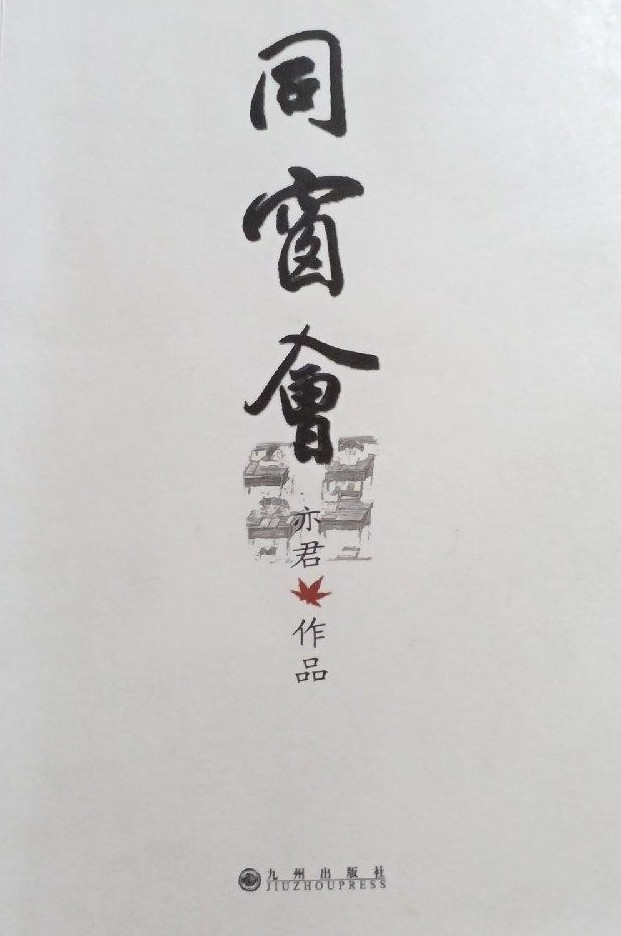 同窗會
亦君
作品
九州出版社
JIUZHOUPRESS